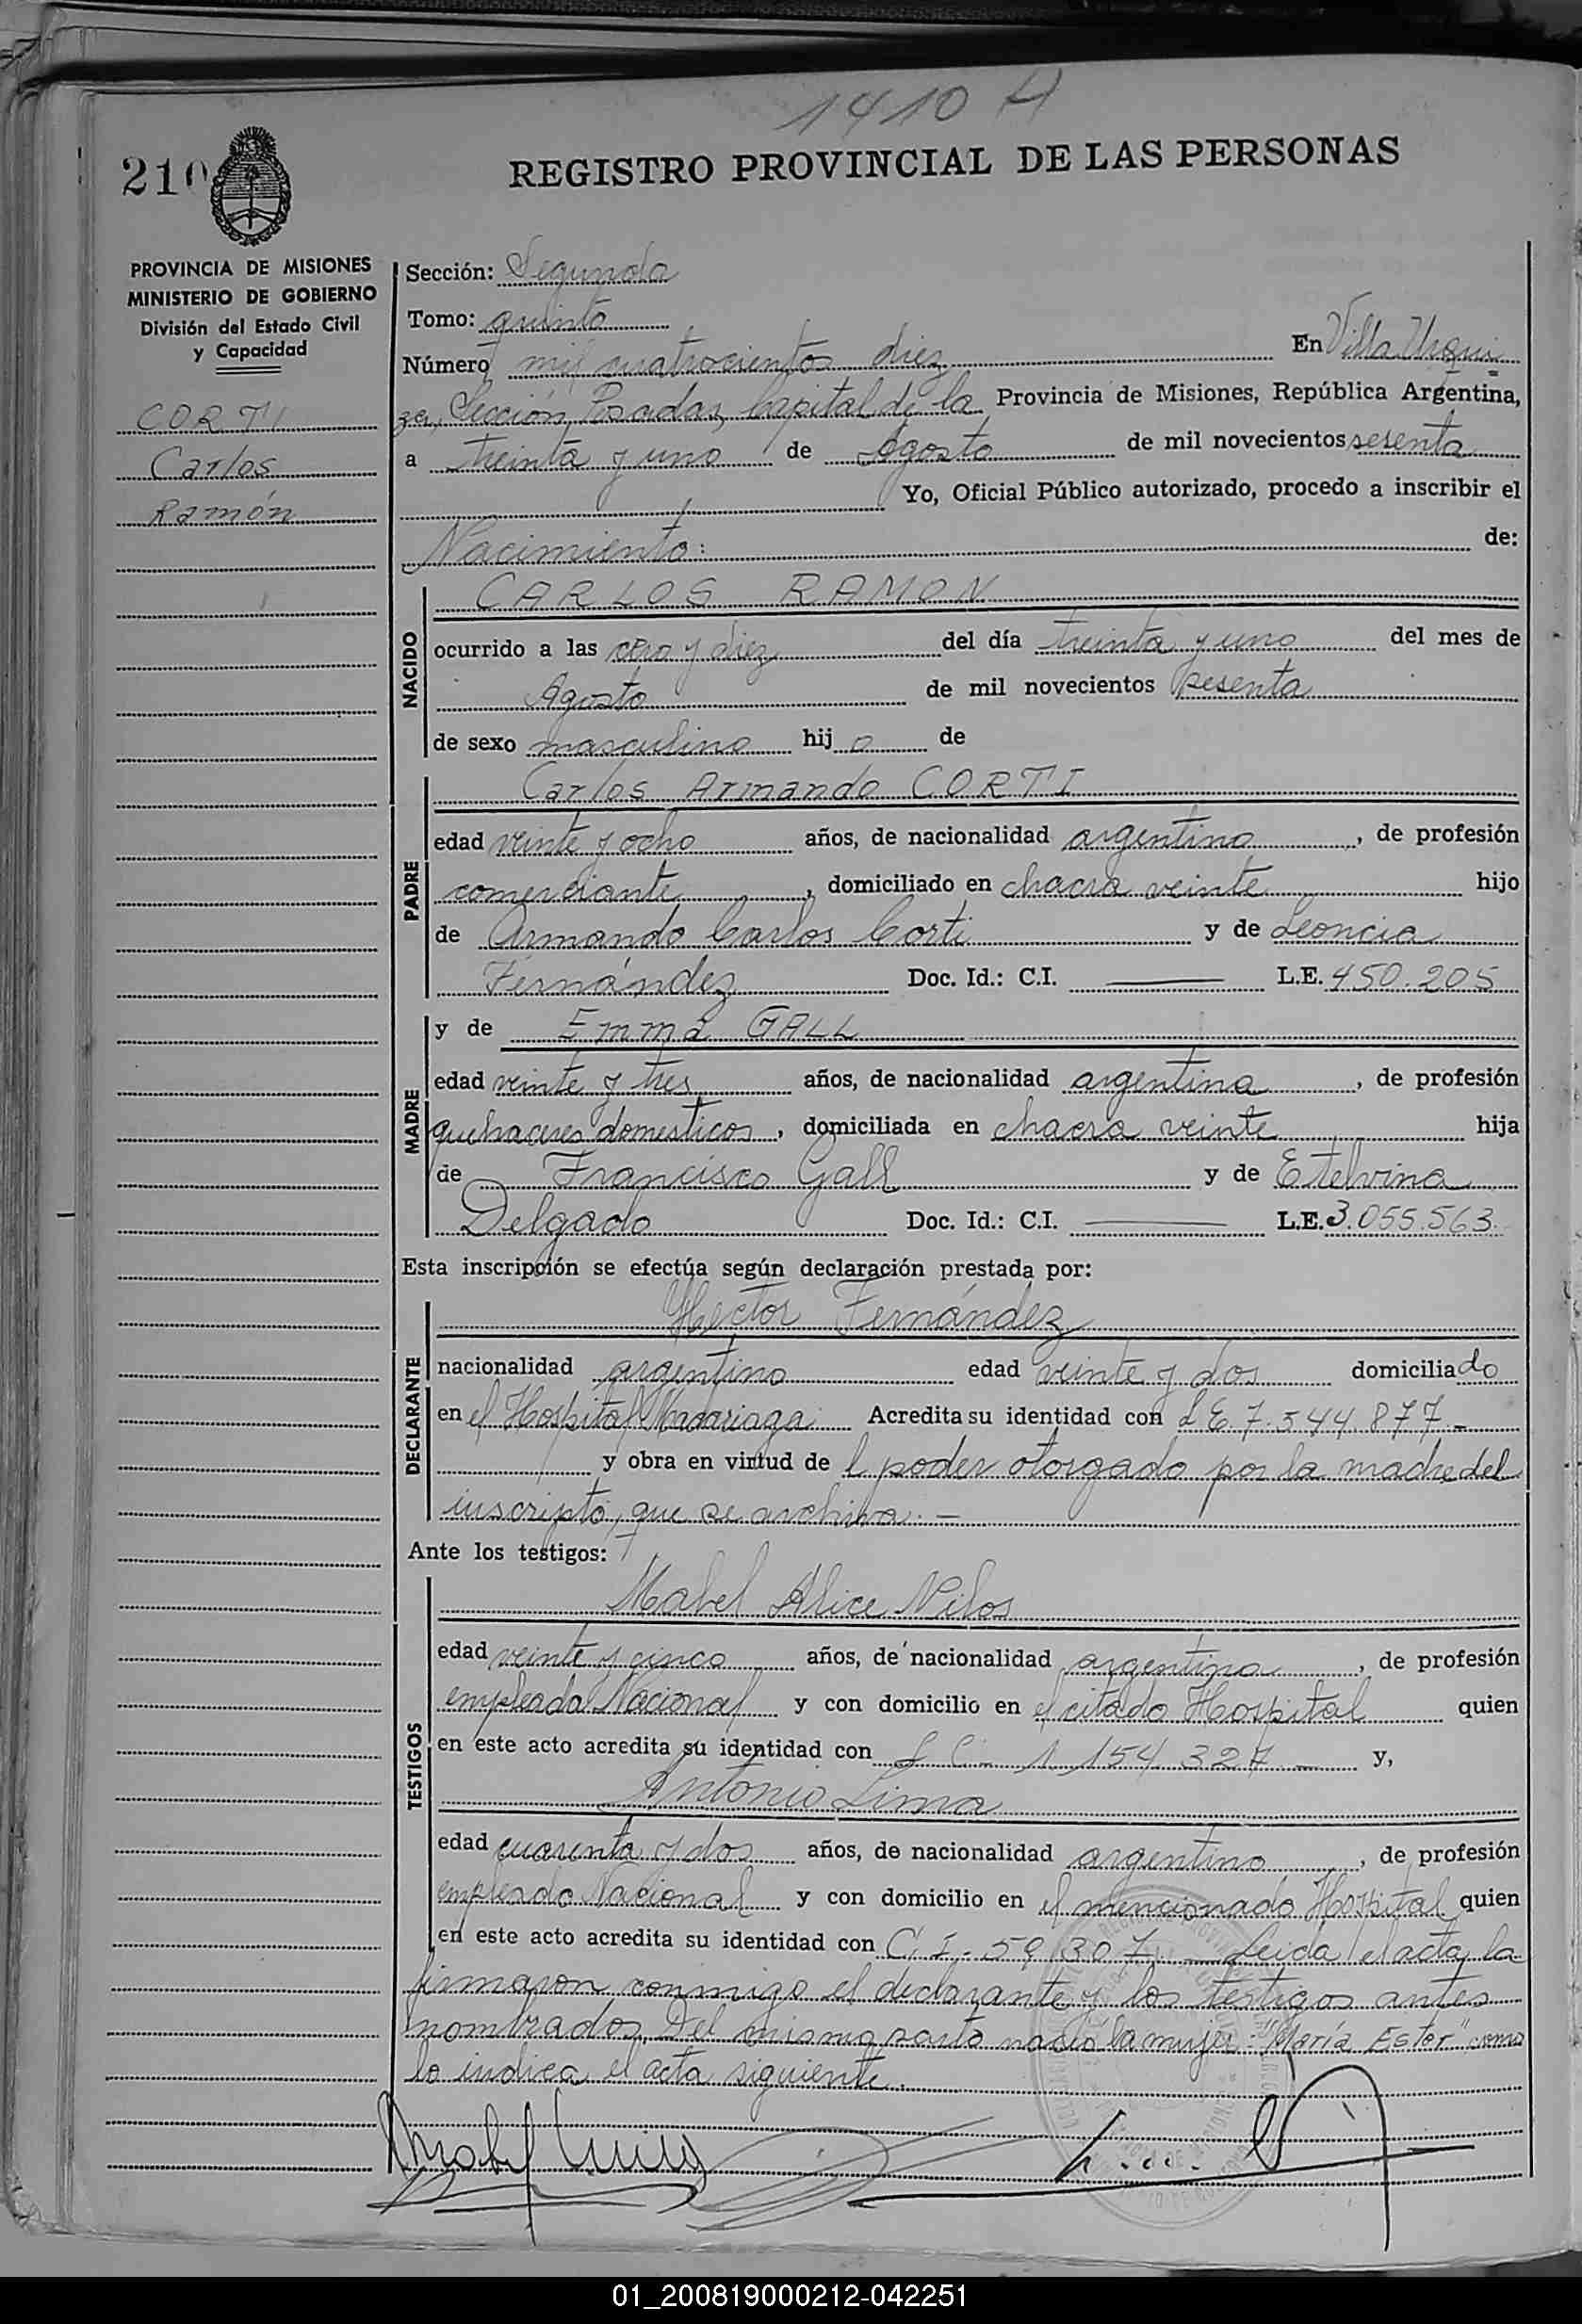 1410 A
210
REGISTRO PROVINCIAL DE LAS PERSONAS
PROVINCIA DE MISIONES
MINISTERIO DE GOBIERNO
División del Estado Civil
y Capacidad
CORTI
Carlos
Ramón
Sección: Segunda
Tomo: quinto
Número mil cuatrocientos diez En Villa Urqui=
za, Sección Posadas, Capital de la Provincia de Misiones, República Argentina,
a treinta y uno de Agosto de mil novecientos sesenta
Yo, Oficial Público autorizado, procedo a inscribir el
Nacimiento: de:
NACIDO
CARLOS RAMON
ocurrido a las cero y diez del día treinta y uno del mes de
Agosto de mil novecientos sesenta
de sexo masculino hij o de
PADRE
Carlos Armando CORTI
edad veinte y ocho años, de nacionalidad argentino, de profesión
comerciante, domiciliado en chacra veinte hijo
de Armando Carlos Corti y de Leoncia
Fernández Doc. Id.: C.I. L.E. 450.205
MADRE
y de Emma GALL
edad veinte y tres años, de nacionalidad argentina, de profesión
quehaceres domesticos, domiciliada en chacra veinte hija
de Francisco Gall y de Etelvina
Delgado Doc. Id.: C.I. L.E. 3.055.563
Esta inscripción se efectúa según declaración prestada por:
DECLARANTE
Héctor Fernández
nacionalidad argentino edad veinte y dos domiciliado
en el Hospital Madariaga Acredita su identidad con L E. 7.544.877.-
y obra en virtud de l poder otorgado por la madre del
inscripto, que se archiva.-
Ante los testigos:
TESTIGOS
Mabel Alice
edad veinte y cinco años, de nacionalidad argentina, de profesión
empleada Nacional y con domicilio en el citado Hospital quien
en este acto acredita su identidad con L C.- 1.154.327.- y,
Antonio Lima
edad cuarenta y dos años, de nacionalidad argentino, de profesión
empleado Nacional y con domicilio en el mencionado Hospital quien
en este acto acredita su identidad con C. I.- 59.307.- Leída el acta, la
firmaron conmigo el declarante y los testigos antes
nombrados. Del mismo parto nació la mujer: "María Ester" como
lo indica el acta siguiente.
01_200819000212-042251